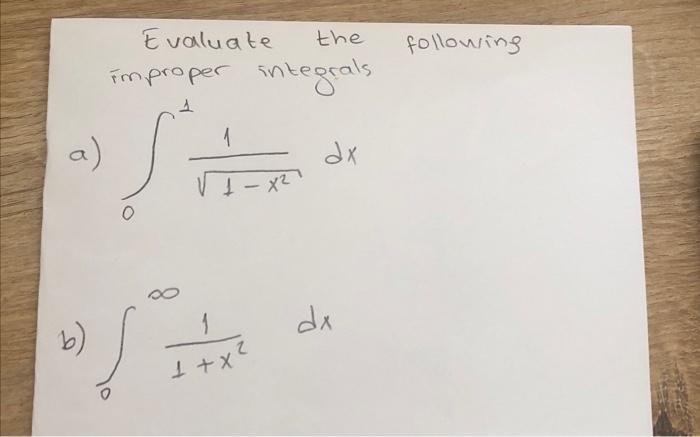 Evaluate the following
improper integrals
a) ∫₀¹ 1/√(1-x²) dx
b) ∫₀^∞ 1/(1+x²) dx